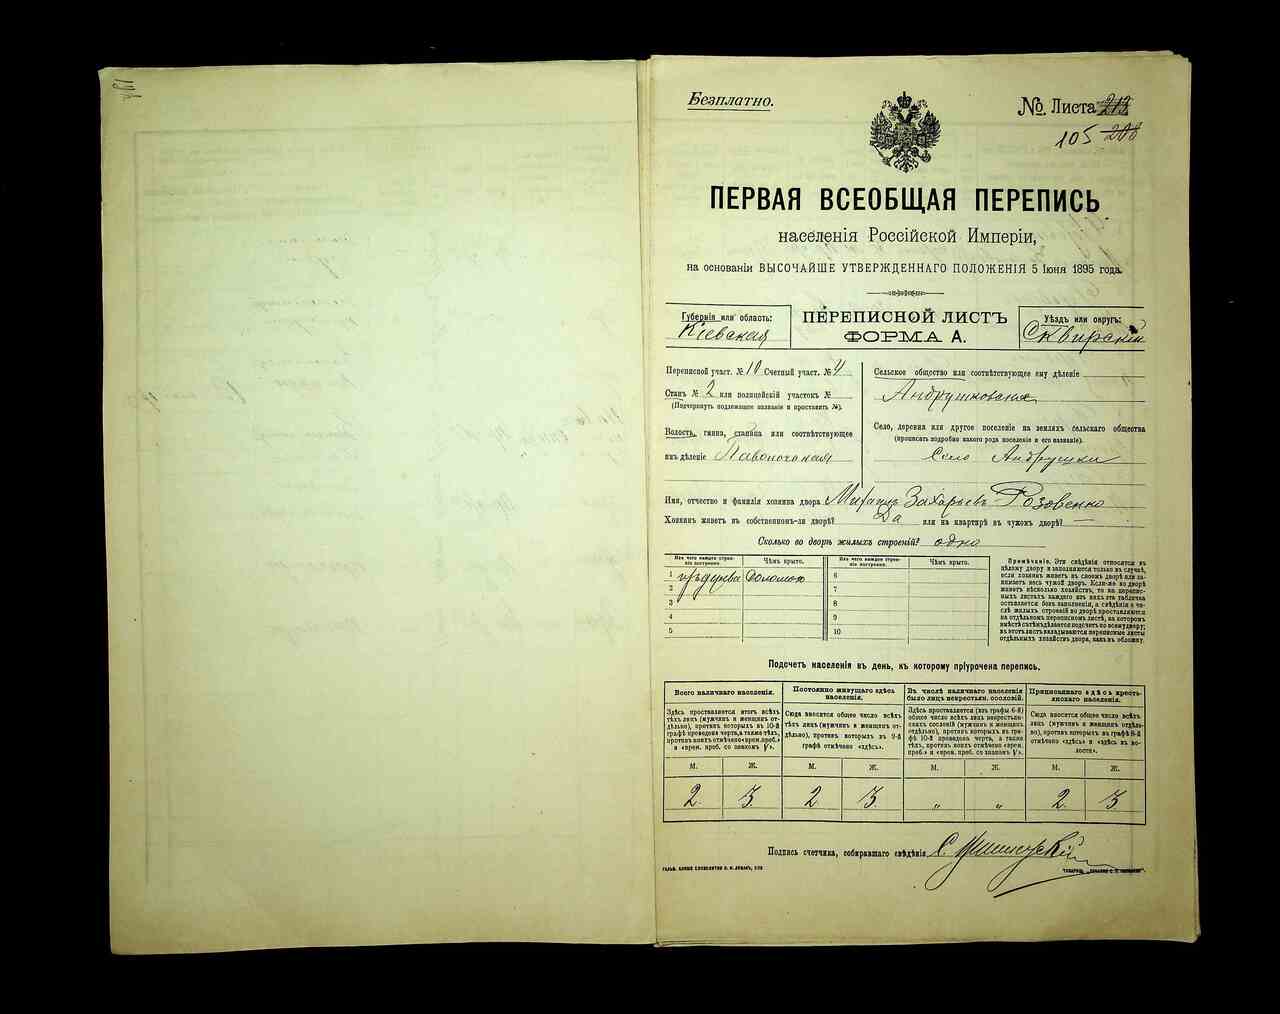 Безплатно.
№ Листа 213
105 208
ПЕРВАЯ ВСЕОБЩАЯ ПЕРЕПИСЬ
населенія Россійской Имперіи,
на основаніи ВЫСОЧАЙШЕ УТВЕРЖДЕННАГО ПОЛОЖЕНІЯ 5 Іюня 1895 года.
Губернія или область:
Кіевская
ПЕРЕПИСНОЙ ЛИСТЪ
ФОРМА А.
Уѣздъ или округъ:
Сквирскій
Переписной участ. № 10 Счетный участ. № 4
Станъ № 2 или полицейскій участокъ №
(Подчеркнуть подлежащее названіе и проставить №).
Волость, гмина, станица или соотвѣтствующее
имъ дѣленіе Паволочская
Сельское общество или соотвѣтствующее ему дѣленіе
Андрушковская
Село, деревня или другое поселеніе на земляхъ сельскаго общества
(прописать подробно какого рода поселеніе и его названіе).
Село Андрушки
Имя, отчество и фамилія хозяина двора Захарьевъ Розовенко
Хозяинъ живетъ въ собственномъ-ли дворѣ? Да или на квартирѣ въ чужомъ дворѣ? —
Сколько во дворѣ жилыхъ строеній? одно
Изъ чего каждое строеніе построено.
Чѣмъ крыто.
Изъ чего каждое строеніе построено.
Чѣмъ крыто.
1 изъ дерева Соломою
2
3
4
5
6
7
8
9
10
Примѣчаніе. Эти свѣдѣнія относятся къ
цѣлому двору и заполняются только въ случаѣ,
если хозяинъ живетъ въ своемъ дворѣ или за-
нимаетъ весь чужой дворъ. Если-же во дворѣ
живетъ нѣсколько хозяйствъ, то на перепис-
ныхъ листахъ каждаго изъ нихъ эта табличка
оставляется безъ заполненія, а свѣдѣнія о чи-
слѣ жилыхъ строеній во дворѣ проставляются
на отдѣльномъ переписномъ листѣ, на которомъ
вмѣстѣ съ тѣмъ дѣлается подсчетъ со всему двору;
въ этотъ листъ вкладываются переписные листы
отдѣльныхъ хозяйствъ двора, какъ въ обложку.
Подсчетъ населенія въ день, къ которому пріурочена перепись.
Всего наличнаго населенія.
Здѣсь проставляется итогъ всѣхъ
тѣхъ лицъ (мужчинъ и женщинъ от-
дѣльно), противъ которыхъ въ 10-й
графѣ проведена черта, а также тѣхъ,
противъ коихъ отмѣчено «врем. преб.»
и «врем. преб. со знакомъ V».
Постоянно живущаго здѣсь
населенія.
Сюда вносится общее число всѣхъ
тѣхъ лицъ (мужчинъ и женщинъ от-
дѣльно), противъ которыхъ въ 9-й
графѣ отмѣчено «здѣсь».
Въ числѣ наличнаго населенія
было лицъ некрестьян. сословій.
Здѣсь проставляется (изъ графы 6-й)
общее число всѣхъ лицъ некрестьян-
скихъ сословій (мужчинъ и женщинъ
отдѣльно), противъ которыхъ въ гра-
фѣ 10-й проведена черта, а также
тѣхъ, противъ коихъ отмѣчено «врем.
преб.» и «врем. преб. со знакомъ V».
Приписаннаго здѣсь кресть-
янскаго населенія.
Сюда вносится общее число всѣхъ
лицъ (мужчинъ и женщинъ отдѣль-
но), противъ которыхъ въ графѣ 8-й
отмѣчено «здѣсь» и «здѣсь въ во-
лости».
М. Ж. М. Ж. М. Ж. М. Ж.
2. 3. 2 3. „ „ 2. 3
Подпись счетчика, собиравшаго свѣдѣнія